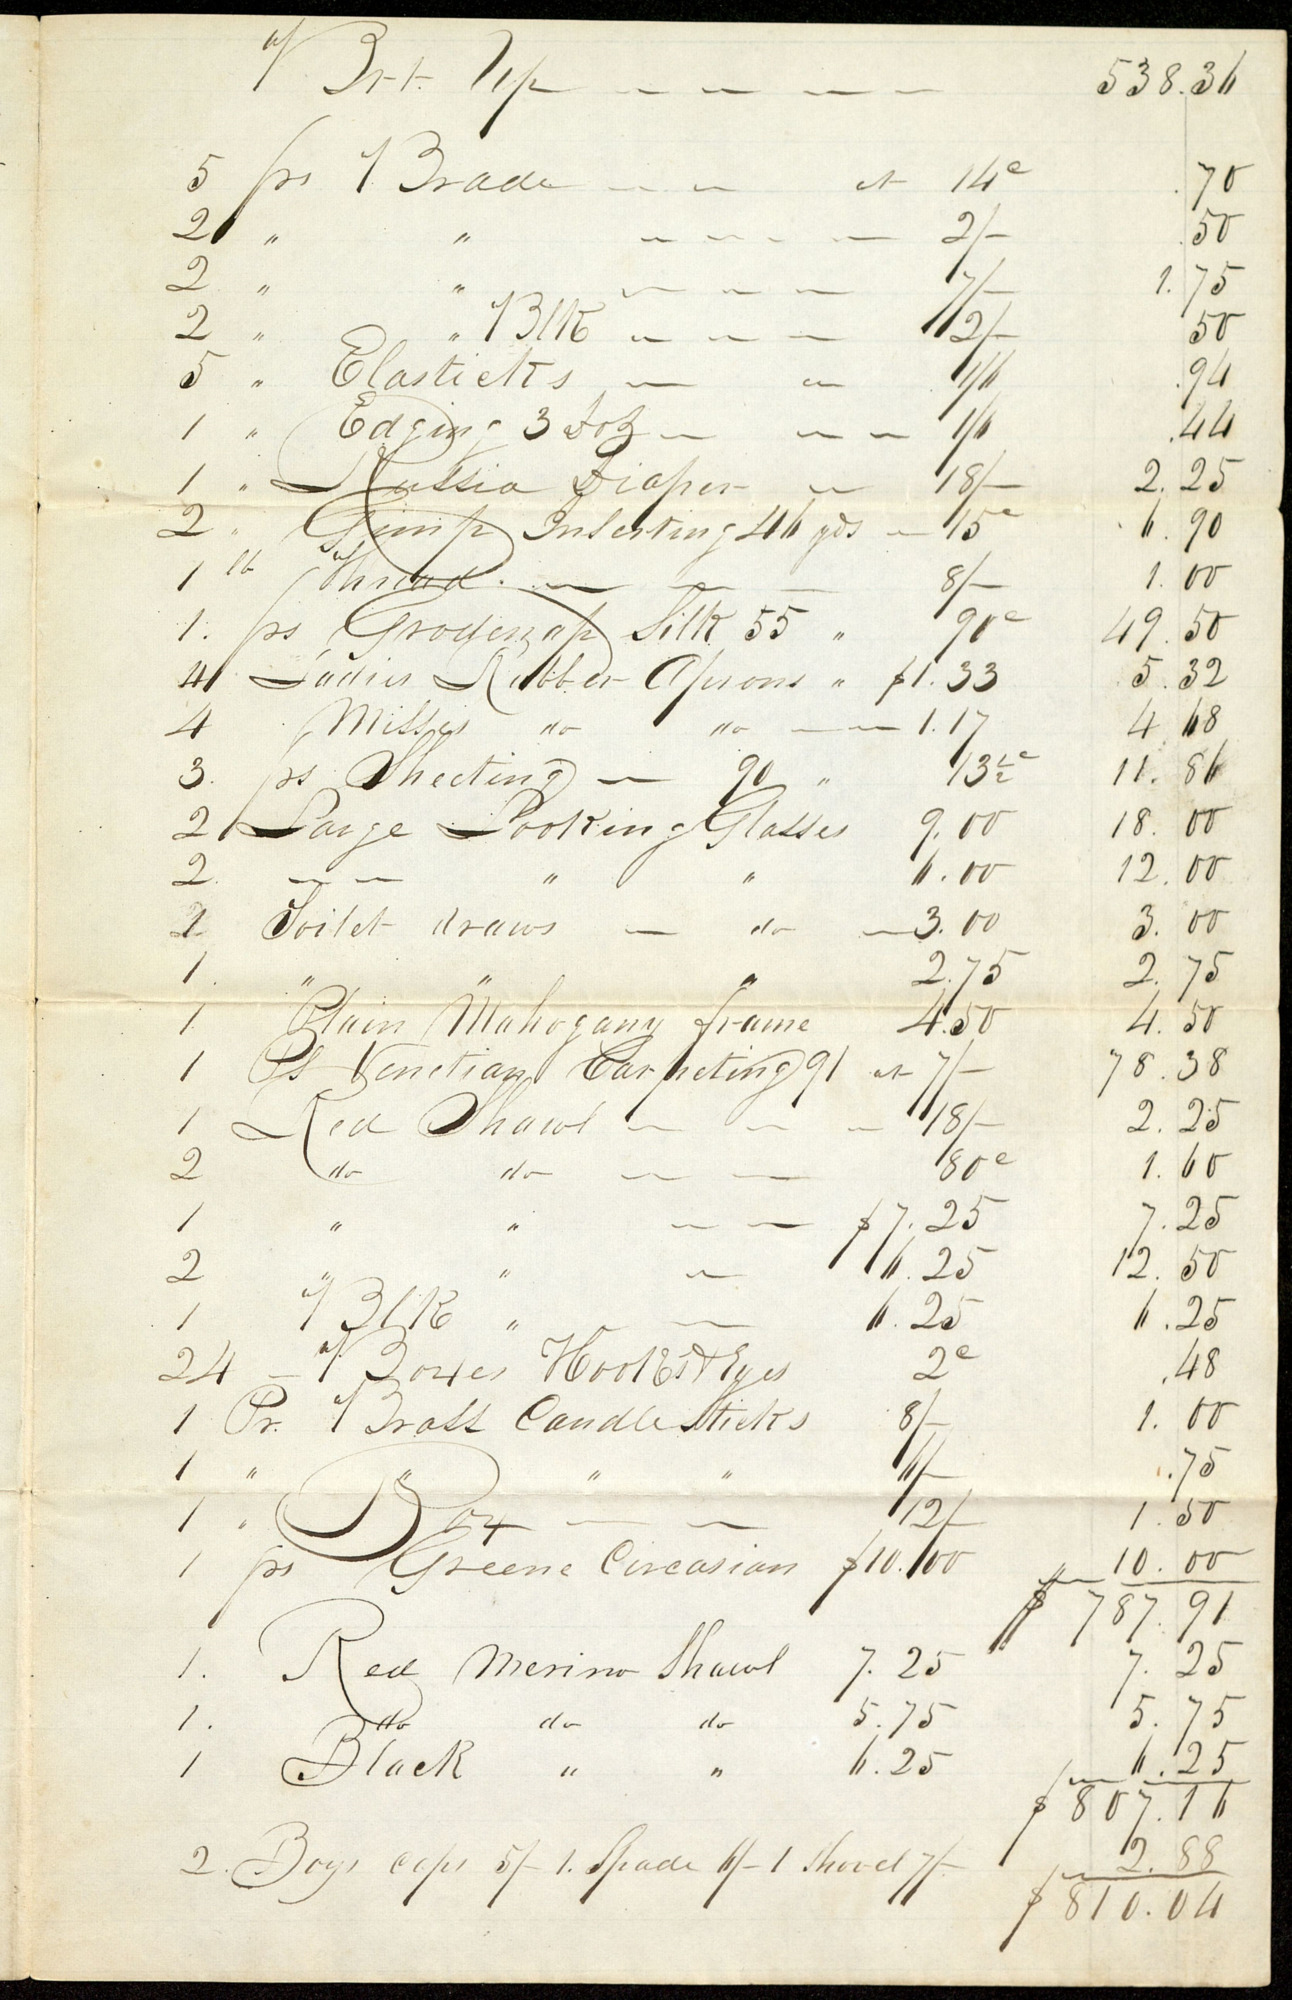 Brt. Up — — — — 538.36
5 ps Brade — — at 14c .70
2 " " — — — — 2/- .50
2 " " — — — 7/- 1.75
2 " " Blk — — — 2/- 50
5 " Elasticks — — 1/6 .94
1 " Edging 3 doz — — — 1/6 .44
1 " Russia Diaper — 18/- 2.25
2 " Gimp Inserting 46 yds — 15c 6.90
1 lb Thread. — — — 8/- 1.00
1. ps Grodenap Silk 55 " 90c 49.50
4 Ladies Rubber Aprons " $1.33 5.32
4 Misses do do — — 1.17 4.68
3. ps Sheeting — 90 " 13½c 11.86
2 Large Looking Glasses 9.00 18.00
2. — — " " 6.00 12.00
1 Toilet draws — do — 3.00 3.00
1. " " " 2.75 2.75
1 Plain Mahogany frame 4.50 4.50
1 Ps Venetian Carpeting 91 at 7/- 78.38
1 Red Shawl — — — 18/- 2.25
2 do do — — 80c 1.60
1 " " — — $7.25 7.25
2 " " — 6.25 12.50
1 Blk " — 6.25 6.25
24 — Boxes Hooks & Eyes 2c .48
1 Pr. Brass Candle Sticks 8/- 1.00
1 " " " " 6/- .75
1 " Box — — 12/- 1.50
1 ps Greene Circasian $10.00 10.00
$787.91
1. Red Merino Shawl 7.25 7.25
1. do do do 5.75 5.75
1 Black " " 6.25 6.25
$807.16
2. Boys caps 5/- 1. Spade 6/- 1 Shovel 7/- 2.88
$810.04